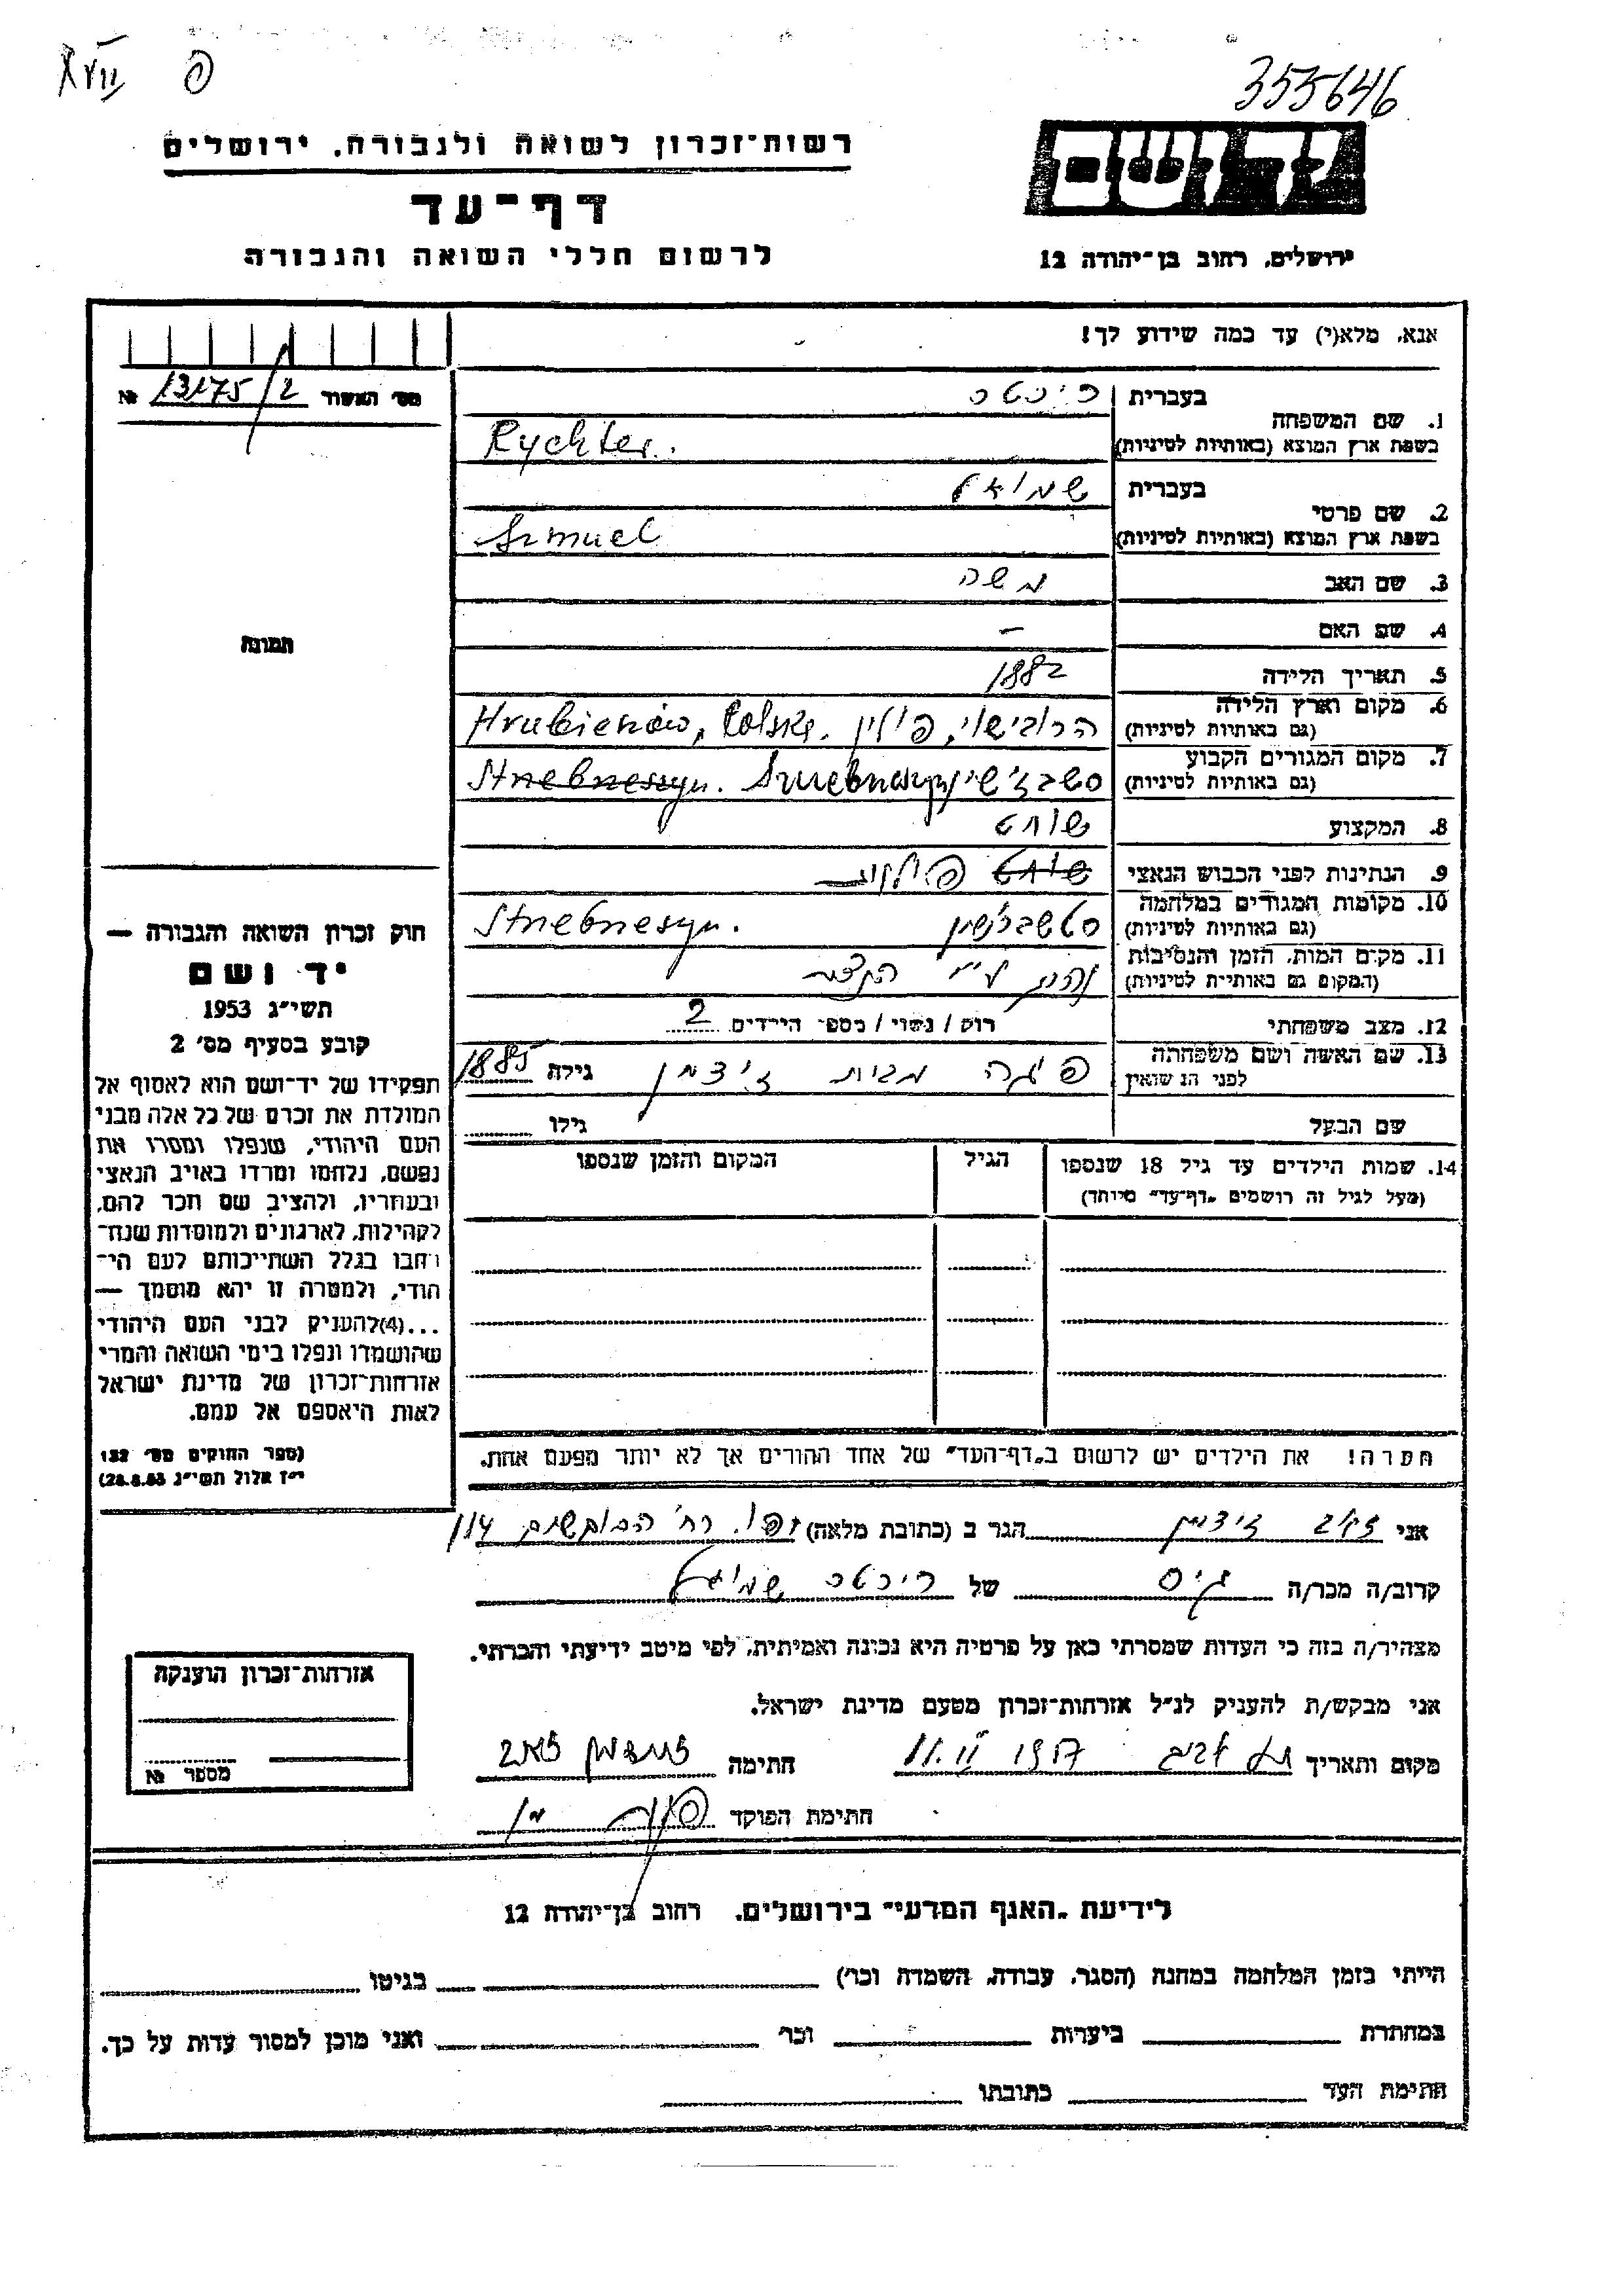 XVII פ
355646
רשות־זכרון לשואה ולגבורה, ירושלים
דף־עד
לרשום חללי השואה והגבורה
יד ושם
ירושלים, רחוב בן־יהודה 12
אנא, מלא(י) עד כמה שידוע לך!
מס׳ האשור 13175/2 №
תמונה
1. שם המשפחה בעברית ריכטר
בשפת ארץ המוצא (באותיות לטיניות) Rychter.
2. שם פרטי בעברית שמואל
בשפת ארץ המוצא (באותיות לטיניות) Szmuel
3. שם האב משה
4. שם האם –
5. תאריך הלידה 1882
6. מקום וארץ הלידה הרובישוי, פולין. Hrubieszów, Polska.
(גם באותיות לטיניות)
7. מקום המגורים הקבוע
(גם באותיות לטיניות)
8. המקצוע שוחט
9. הנתינות לפני הכבוש הנאצי שוחט פולנית
10. מקומות המגורים במלחמה
(גם באותיות לטיניות)
11. מקום המות, הזמן והנסיבות
(המקום גם באותיות לטיניות)
12. מצב משפחתי רוק / נשוי / מספ׳ הילדים 2
13. שם האשה ושם משפחתה פיגה מבית זיצמן גילה 1885
לפני הנשואין
שם הבעל גילו
14. שמות הילדים עד גיל 18 שנספו הגיל המקום והזמן שנספו
(מעל לגיל זה רושמים „דף־עד” מיוחד)
הערה! את הילדים יש לרשום ב„דף־העד” של אחד ההורים אך לא יותר מפעם אחת.
חוק זכרון השואה והגבורה —
יד ושם
תשי״ג 1953
קובע בסעיף מס׳ 2
תפקידו של יד־ושם הוא לאסוף אל
המולדת את זכרם של כל אלה מבני
העם היהודי, שנפלו ומסרו את
נפשם, נלחמו ומרדו באויב הנאצי
ובעוזריו, ולהציב שם וזכר להם,
לקהילות, לארגונים ולמוסדות שנח־
רבו בגלל השתייכותם לעם הי־
הודי, ולמטרה זו יהא מוסמך —
...(4)להעניק לבני העם היהודי
שהושמדו ונפלו בימי השואה והמרי
אזרחות־זכרון של מדינת ישראל
לאות היאספם אל עמם.
(ספר החוקים מס׳ 132
י״ז אלול תשי״ג 28.8.53)
אני זאב זיצמן הגר ב (כתובת מלאה) יפו. רח׳
קרוב/ה מכר/ה גיס של ריכטר שמואל
מצהיר/ה בזה כי העדות שמסרתי כאן על פרטיה היא נכונה ואמיתית, לפי מיטב ידיעתי והכרתי.
אני מבקש/ת להעניק לנ״ל אזרחות־זכרון מטעם מדינת ישראל.
מקום ותאריך תל אביב 11.II 1957 חתימה זיצמן זאב
חתימת הפוקד
אזרחות־זכרון הוענקה
מספר №
לידיעת „האגף המדעי” בירושלים, רחוב בן־יהודה 12
הייתי בזמן המלחמה במחנה (הסגר, עבודה, השמדה וכו׳) בגיטו
במחתרת ביערות וכו׳ ואני מוכן למסור עדות על כך.
חתימת העד כתובתו